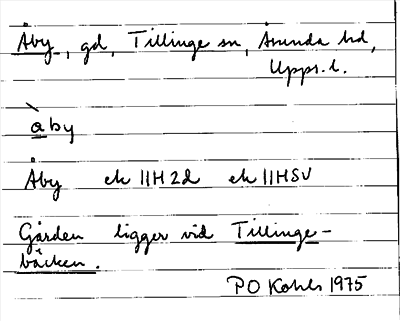 Åby, gd, Tillinge sn, Åsunda hd,
Upps. l.
àby
Åby ek 11H2d ek 11HSV
Gården ligger vid Tillinge-
bäcken.
PO Kohls 1975